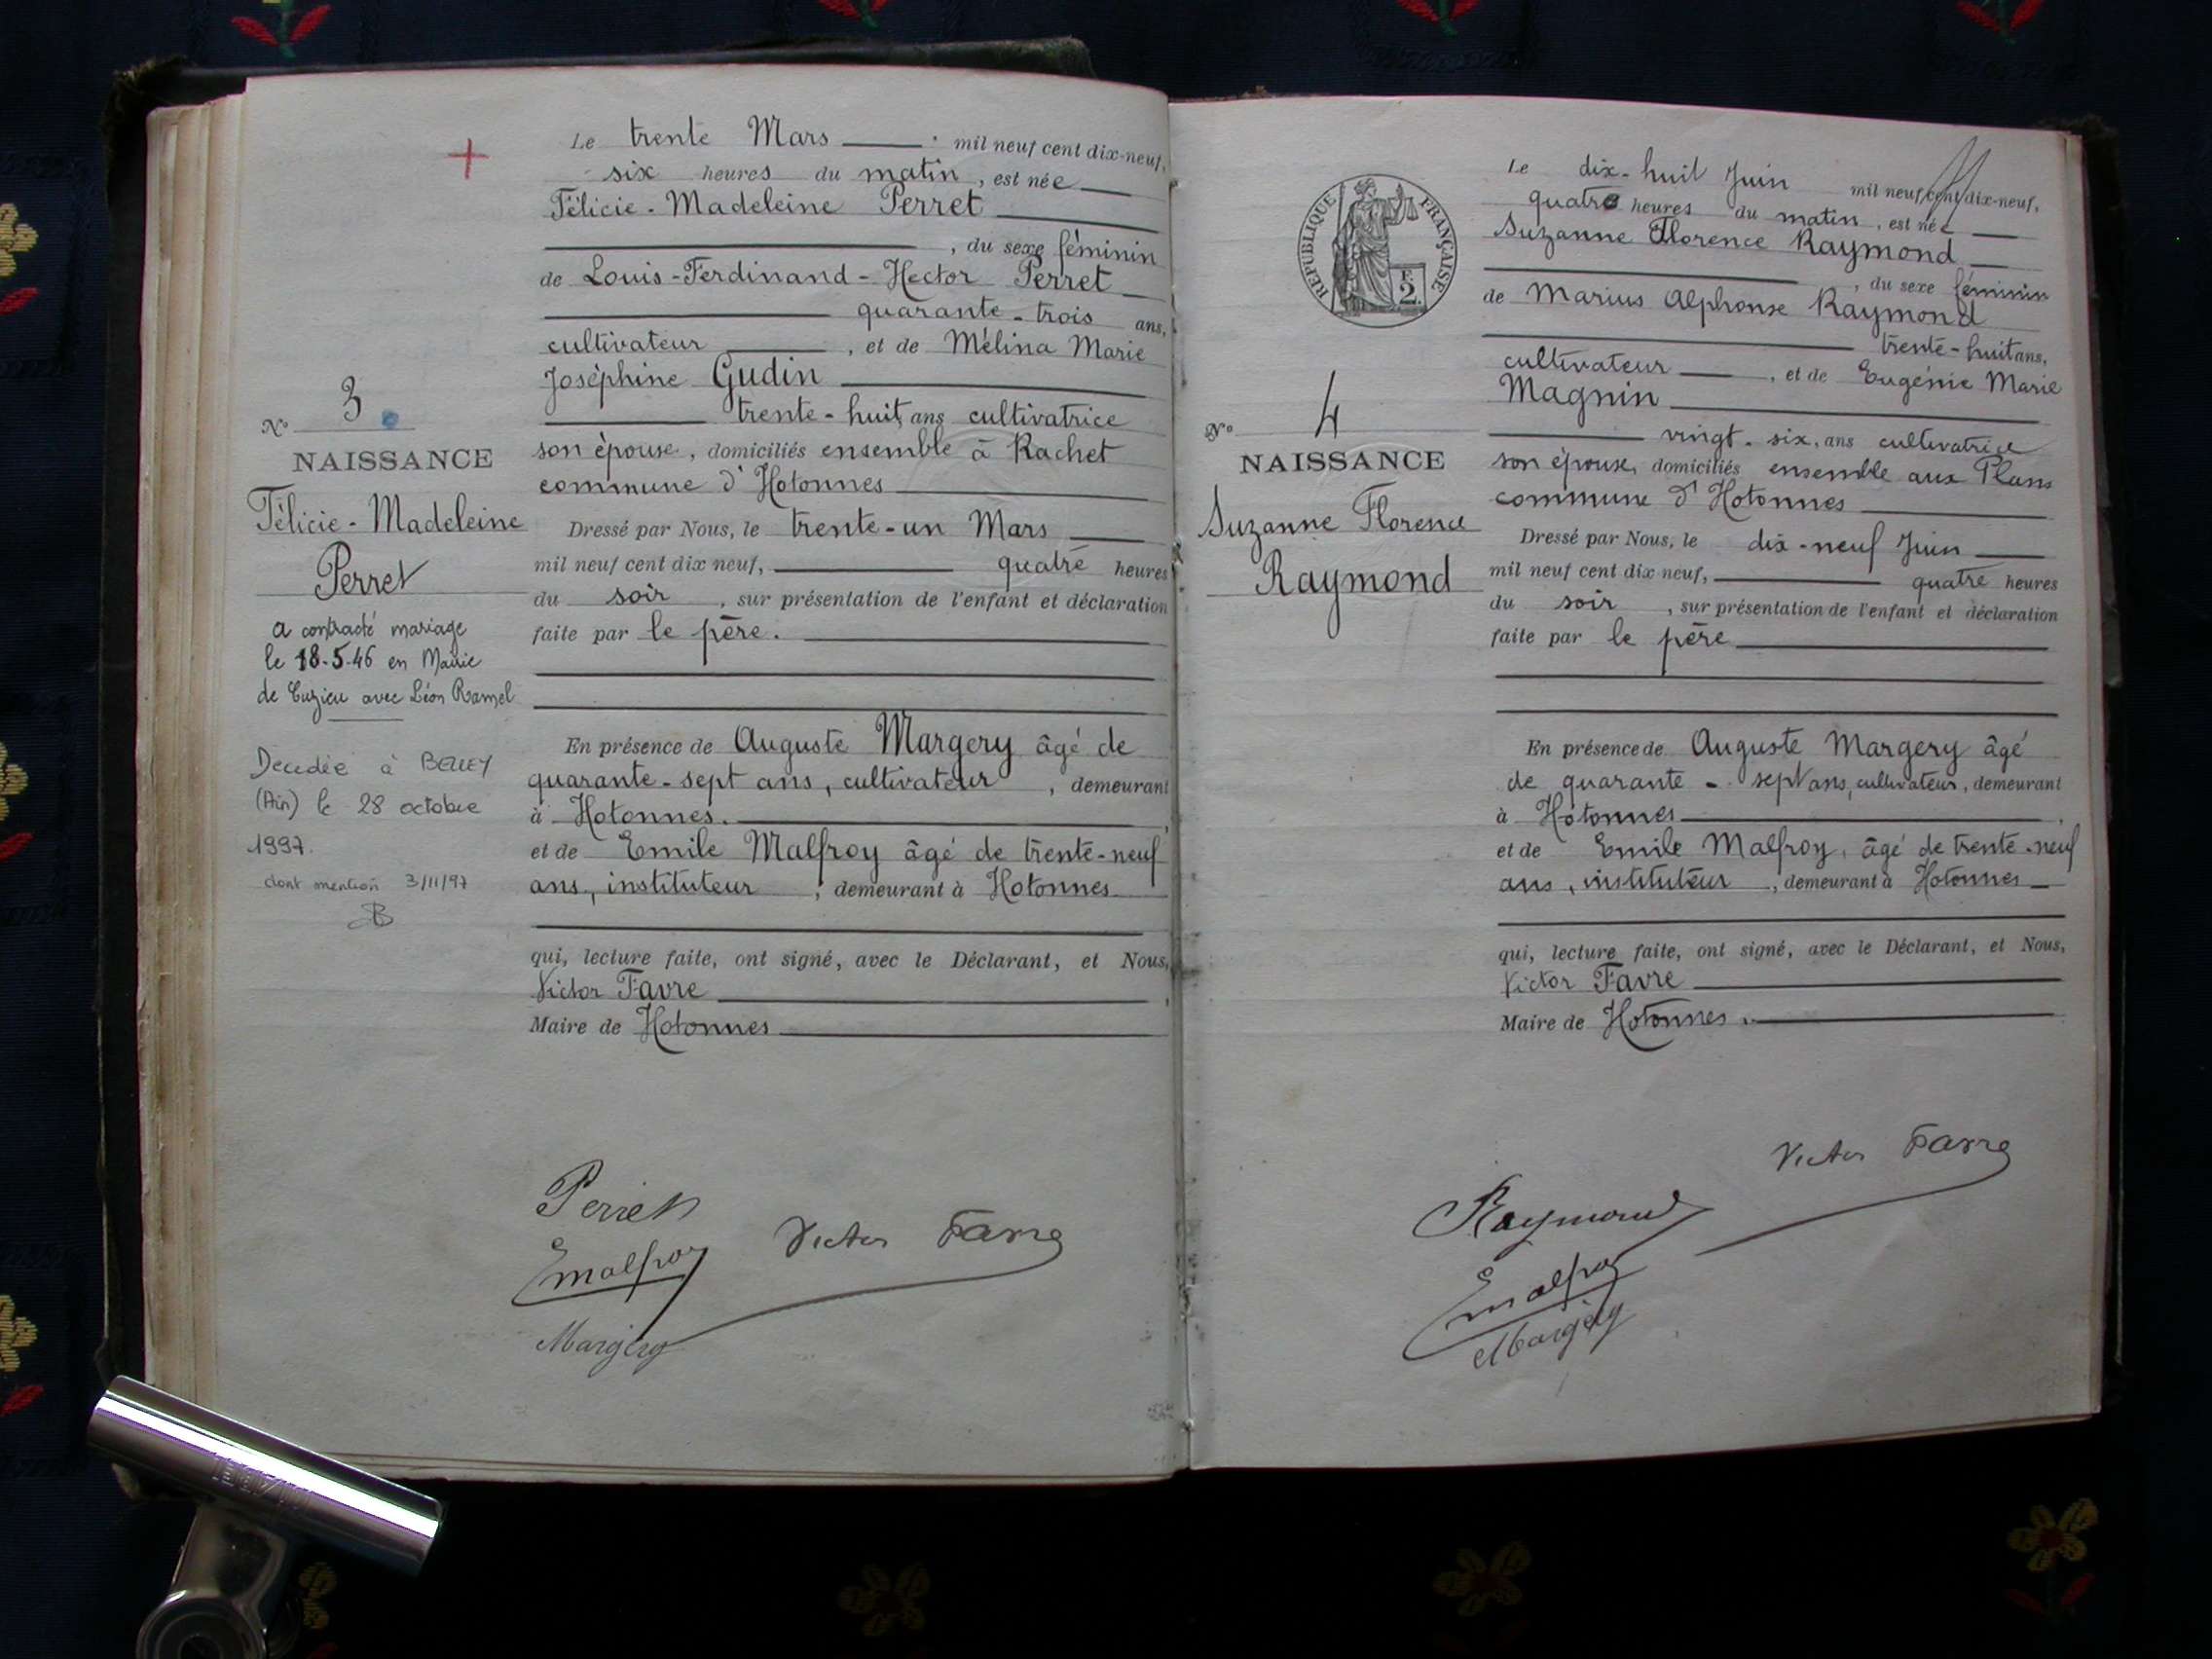 Le trente Mars mil neuf cent dix-neuf,
six heures du matin, est née
Félicie-Madeleine Perret
, du sexe féminin
de Louis-Ferdinand-Hector Perret
quarante-trois ans,
cultivateur, et de Mélina Marie
Joséphine Gudin
trente-huit ans cultivatrice
son épouse, domiciliés ensemble à Rachet
commune d'Hotonnes
Dressé par Nous, le trente-un Mars
mil neuf cent dix neuf, quatre heures
du soir, sur présentation de l'enfant et déclaration
faite par le père.
En présence de Auguste Margery âgé de
quarante-sept ans, cultivateur, demeurant
à Hotonnes.
et de Emile Malfroy âgé de trente-neuf
ans, instituteur, demeurant à Hotonnes
qui, lecture faite, ont signé, avec le Déclarant, et Nous,
Victor Favre
Maire de Hotonnes
N° 3
NAISSANCE
Félicie-Madeleine
Perret
a contracté mariage
le 18-5-46 en Mairie
de Cuzieu avec Léon Ramel
Décédée à BELLEY
(Ain) le 28 octobre
1997.
dont mention 3/11/97
Perret
Emalfroy
Victor Favre
Margery
REPUBLIQUE FRANÇAISE
F.
2.
Le dix-huit Juin mil neuf cent dix-neuf,
quatre heures du matin, est née
Suzanne Florence Raymond
, du sexe féminin
de Marius Alphonse Raymond
trente-huit ans,
cultivateur, et de Eugénie Marie
Magnin
vingt-six, ans cultivatrice
son épouse, domiciliés ensemble aux Plans
commune d'Hotonnes
Dressé par Nous, le dix-neuf Juin
mil neuf cent dix neuf, quatre heures
du soir, sur présentation de l'enfant et déclaration
faite par le père
En présence de Auguste Margery âgé
de quarante-sept ans, cultivateur, demeurant
à Hotonnes
et de Emile Malfroy, âgé de trente-neuf
ans, instituteur, demeurant à Hotonnes
qui, lecture faite, ont signé, avec le Déclarant, et Nous,
Victor Favre
Maire de Hotonnes.
N° 4
NAISSANCE
Suzanne Florence
Raymond
Victor Favre
Raymond
Emalfroy
Margery